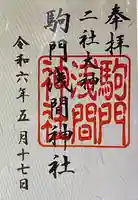 奉拝
二社大神
駒門浅間神社
令和六年五月十七日
駒門
浅間